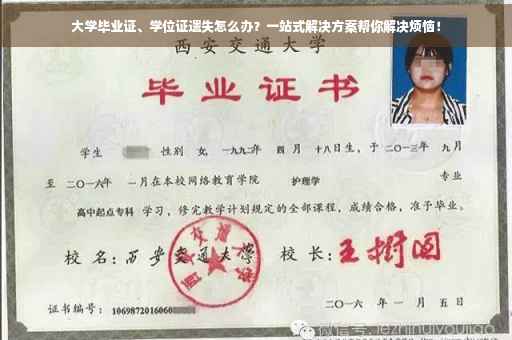 大学毕业证、学位证遗失怎么办？一站式解决方案帮你解决烦恼！
西安交通大学
毕业证书
学生 性别 女, 一九九二年 四月 十八日生, 于 二〇一三年 九月
至 二〇一六年 一月在本校网络教育学院 护理学 专业
高中起点专科 学习, 修完教学计划规定的全部课程, 成绩合格, 准予毕业。
校 名: 西安交通大学 校 长: 王树国
西安交通大学
证书编号: 1069872016060
二〇一六 年 一 月 五 日
微信号: jezhinuiyoujiao